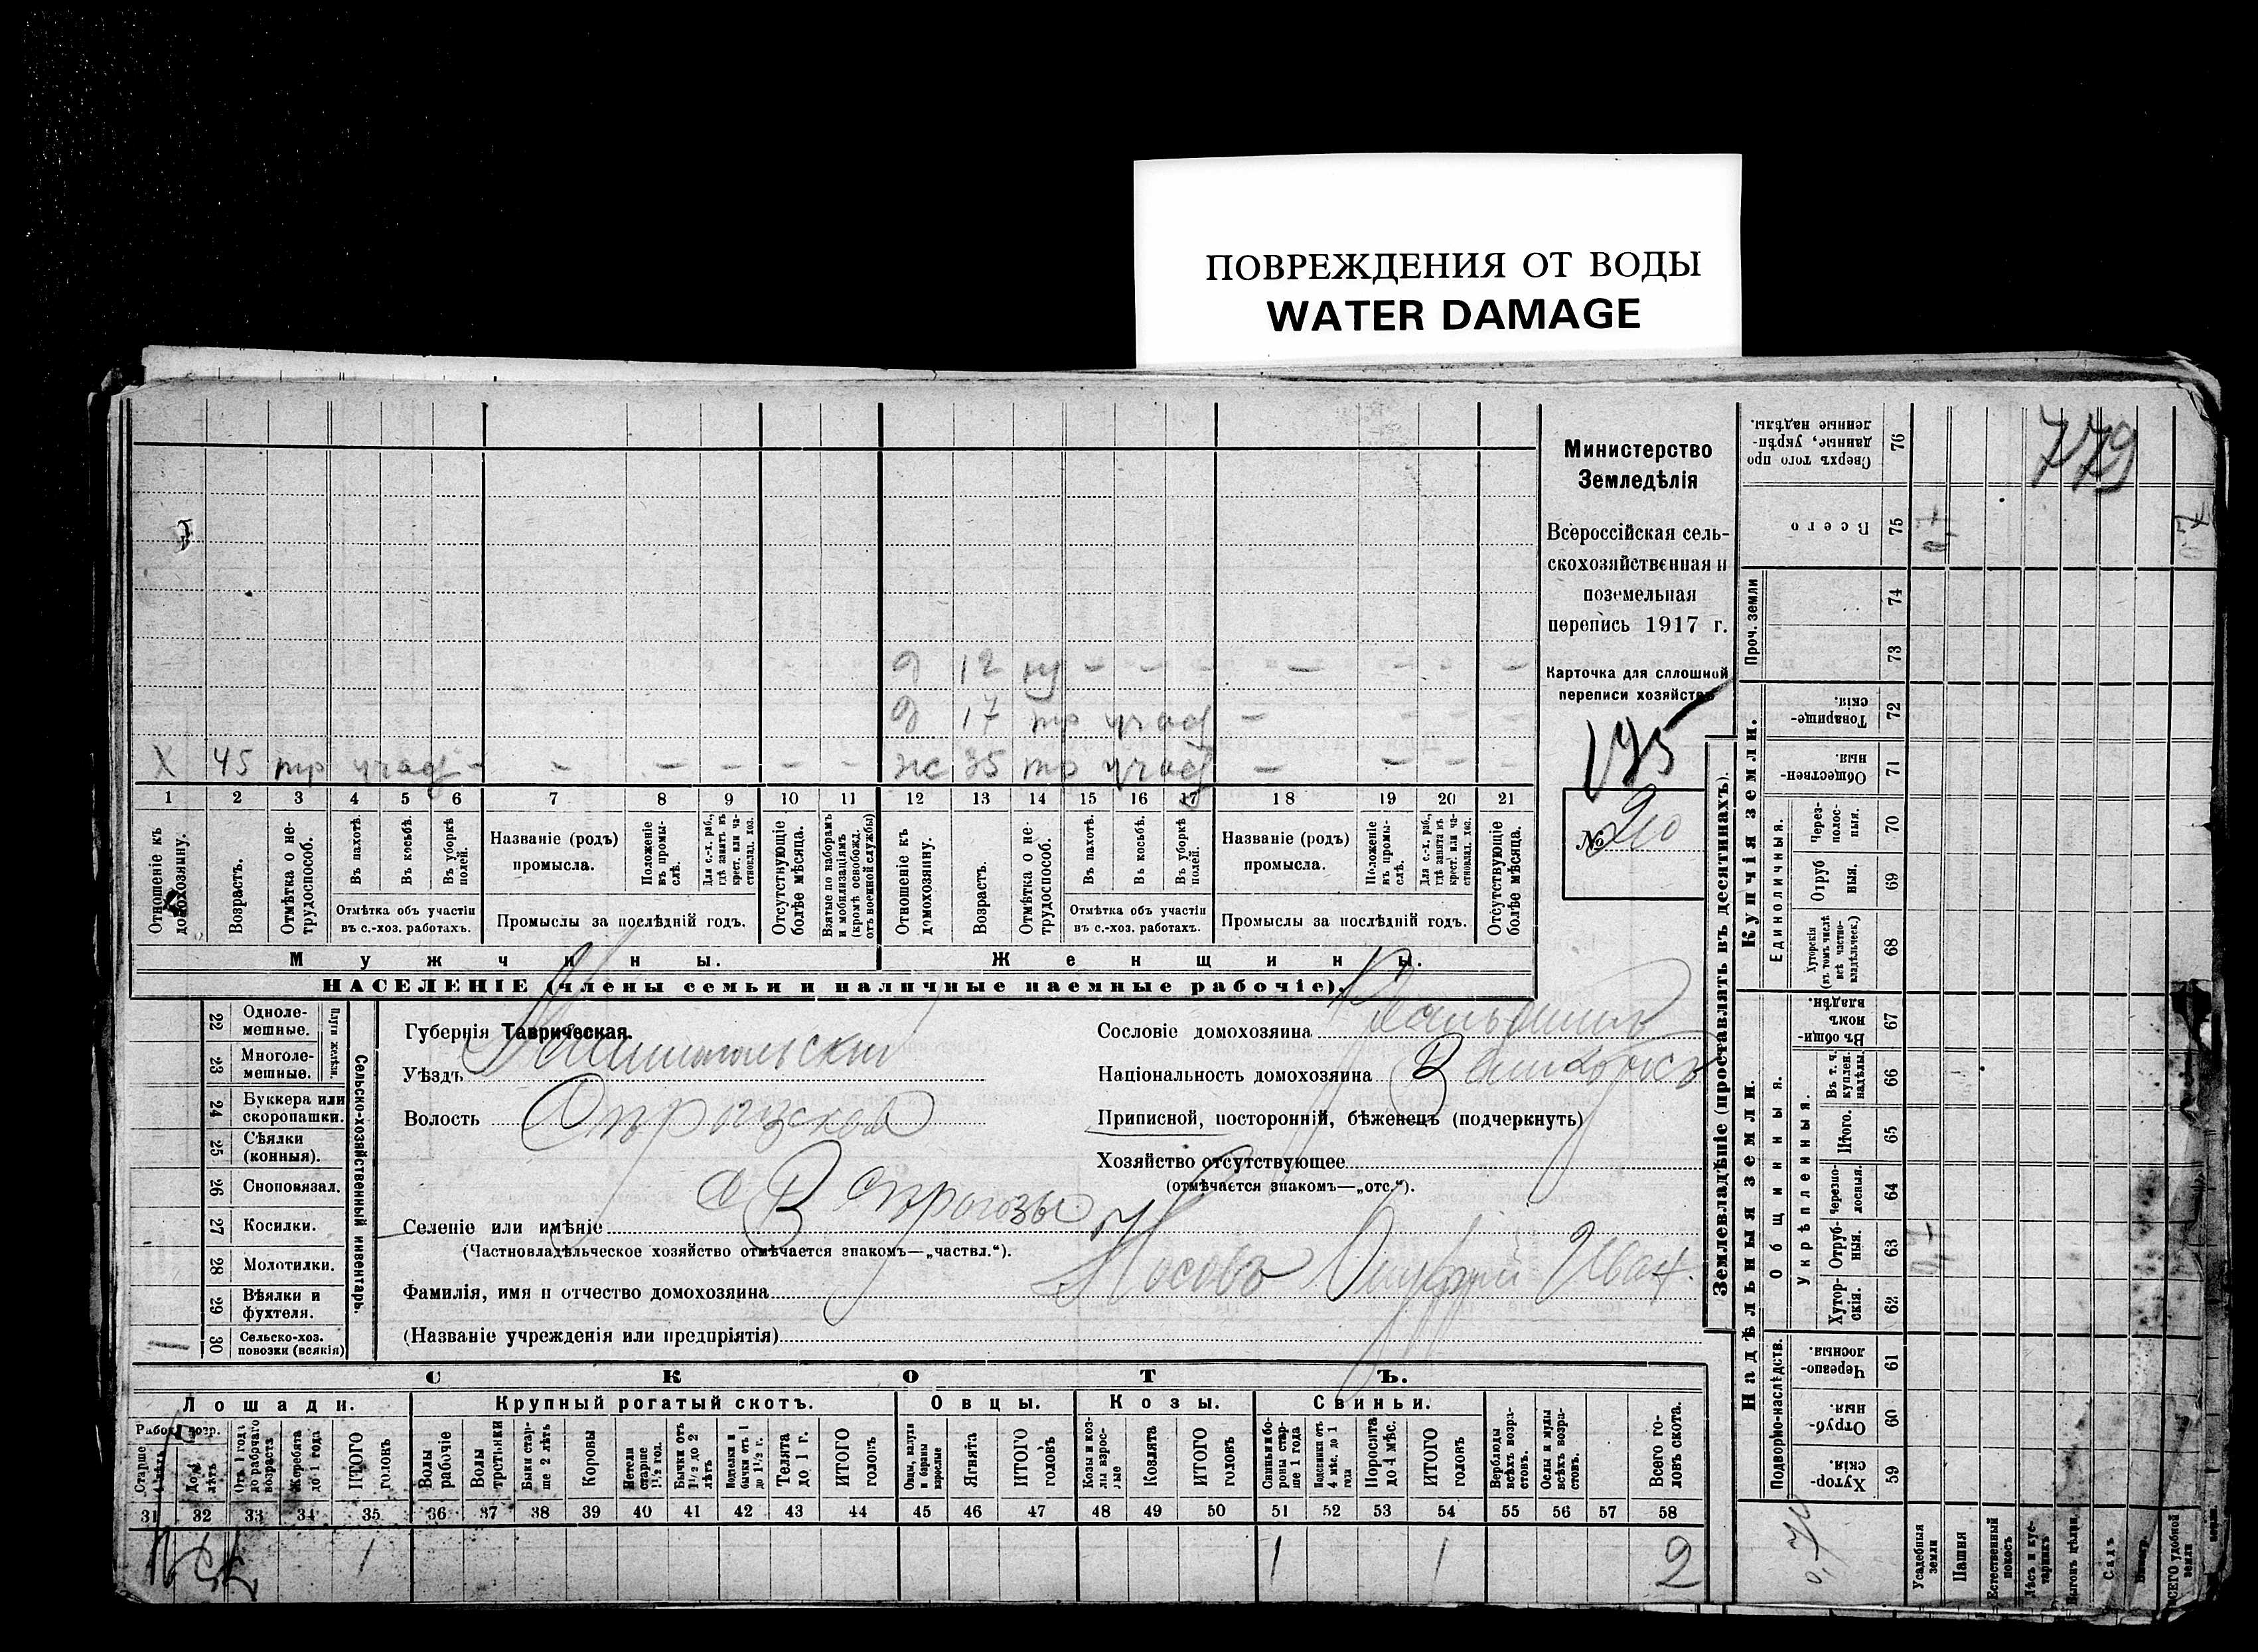 ПОВРЕЖДЕНИЯ ОТ ВОДЫ
WATER DAMAGE
779
Министерство
Земледѣлія
Всероссійская сель-
скохозяйственная и
поземельная
перепись 1917 г.
Карточка для сплошной
переписи хозяйствъ
№
д 12 – – – – – – –
д 17 тр – – – –
Х 45 тр – – – – – –
ж 35 тр – – – –
1 2 3 4 5 6 7 8 9 10 11 12 13 14 15 16 17 18 19 20 21
Отношеніе къ домохозяину.
Возрастъ.
Отмѣтка о не-трудоспособ.
Въ пахотѣ.
Въ косьбѣ.
Въ уборкѣ полей.
Названіе (родъ) промысла.
Положеніе въ промы-слѣ.
Для с.-х. раб., гдѣ занятъ въ крест. или ча-стновлад. хоз.
Отсутствующіе болѣе мѣсяца.
Взятые по наборамъ и мобилизаціямъ (кромѣ освобожд. отъ военной службы)
Отношеніе къ домохозяину.
Возрастъ.
Отмѣтка о не-трудоспособ.
Въ пахотѣ.
Въ косьбѣ.
Въ уборкѣ полей.
Названіе (родъ) промысла.
Положеніе въ промы-слѣ.
Для с.-х. раб., гдѣ занятъ въ крест. или ча-стновлад. хоз.
Отсутствующіе болѣе мѣсяца.
Отмѣтка объ участіи въ с.-хоз. работахъ.
Промыслы за послѣдній годъ.
Отмѣтка объ участіи въ с.-хоз. работахъ.
Промыслы за послѣдній годъ.
Мужчины.
Женщины.
НАСЕЛЕНІЕ (члены семьи и наличные наемные рабочіе).
Сельско-хозяйственный инвентарь.
Плуги желѣзн.
22 Одноле-мешные.
23 Многоле-мешные.
24 Буккера или скоропашки.
25 Сѣялки (конныя).
26 Сноповязал.
27 Косилки.
28 Молотилки.
29 Вѣялки и фухтеля.
30 Сельско-хоз. повозки (всякія)
1
Губернія Таврическая.
Уѣздъ Мелитопольскій
Волость
Селеніе или имѣніе с В Сѣрогозы
(Частновладѣльческое хозяйство отмѣчается знакомъ—„частвл.“).
Фамилія, имя и отчество домохозяина Носовъ Иван.
(Названіе учрежденія или предпріятія)
Сословіе домохозяина
Національность домохозяина Великорос
Приписной, посторонній, бѣженецъ (подчеркнуть)
Хозяйство отсутствующее
(отмѣчается знакомъ—„отс.“).
СКОТЪ.
Лошади.
Крупный рогатый скотъ.
Овцы.
Козы.
Свиньи.
Отъ 1 года до рабочаго возраста
Жеребята до 1 года
ИТОГО головъ
Волы рабочіе
Волы третьяки
Быки стар-ше 2 лѣтъ
Коровы
Нетели старше 1½ год.
Бычки отъ 1½ до 2 лѣтъ
Подтелки и бычки отъ 1 до 1½ г.
Телята до 1 г.
ИТОГО головъ
Овцы, валухи и бараны взрослые
Ягнята
ИТОГО головъ
Козы и коз-лы взрос-лые
Козлята
ИТОГО головъ
Свиньи бо-роны стар-ше 1 года
Подсвинки отъ 4 мѣс. до 1 года
Поросята до 4 мѣс.
ИТОГО головъ
Верблюды всѣхъ возра-стовъ.
Ослы и мулы всѣхъ возра-стовъ.
Всего го-ловъ скота.
31 32 33 34 35 36 37 38 39 40 41 42 43 44 45 46 47 48 49 50 51 52 53 54 55 56 57 58
1 1 1 2
Землевладѣніе (проставлять въ десятинахъ).
Надѣльныя земли.
Купчія земли.
Проч. земли
Подворно-наслѣдств.
Общинныя.
Укрѣпленныя.
Единоличныя.
Хутор-скія. 59
Отруб-ныя. 60
Черезпо-лосныя. 61
Хутор-скія. 62
Отруб-ныя. 63
Черезпо-лосныя. 64
Итого. 65
Въ т. ч. куплен. надѣлы. 66
Въ общин-номъ владѣн. 67
Хуторскія (въ томъ числѣ всѣ частно-владѣльческ.) 68
Отруб-ныя. 69
Через-полос-ныя. 70
Обществен-ныя. 71
Товарище-скія. 72
73
74
Всего 75
Сверхъ того про-данные, укрѣп-ленные надѣлы. 76
Усадебныя земли
Пашня
Естественный покосъ
Лѣсъ и кус-тарникъ
Выгонъ цѣлин.
Садъ
ВСЕГО удобной земли